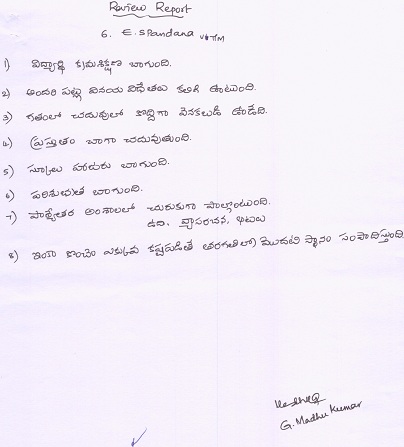 Review Report
6. E. Spandana VII TM
1) విద్యార్థి క్రమశిక్షణ బాగుంది.
2) అందరి పట్ల వినయ విధేతలు కలిగి ఉంటుంది.
3) గతంలో చదువులో కొద్దిగా వెనకబడి ఉండేది.
4) ప్రస్తుతం బాగా చదువుతుంది.
5) స్కూలు హాజరు బాగుంది.
6) పరిశుభ్రత బాగుంది.
7) పాఠ్యేతర అంశాలలో చురుకుగా పాల్గొంటుంది.
ఉదా. వ్యాసరచన, ఆటలు
8) ఇంకా కొంచెం ఎక్కువ కష్టపడితే తరగతిలో మొదటి స్థానం సంపాదిస్తుంది
G. Madhu Kumar